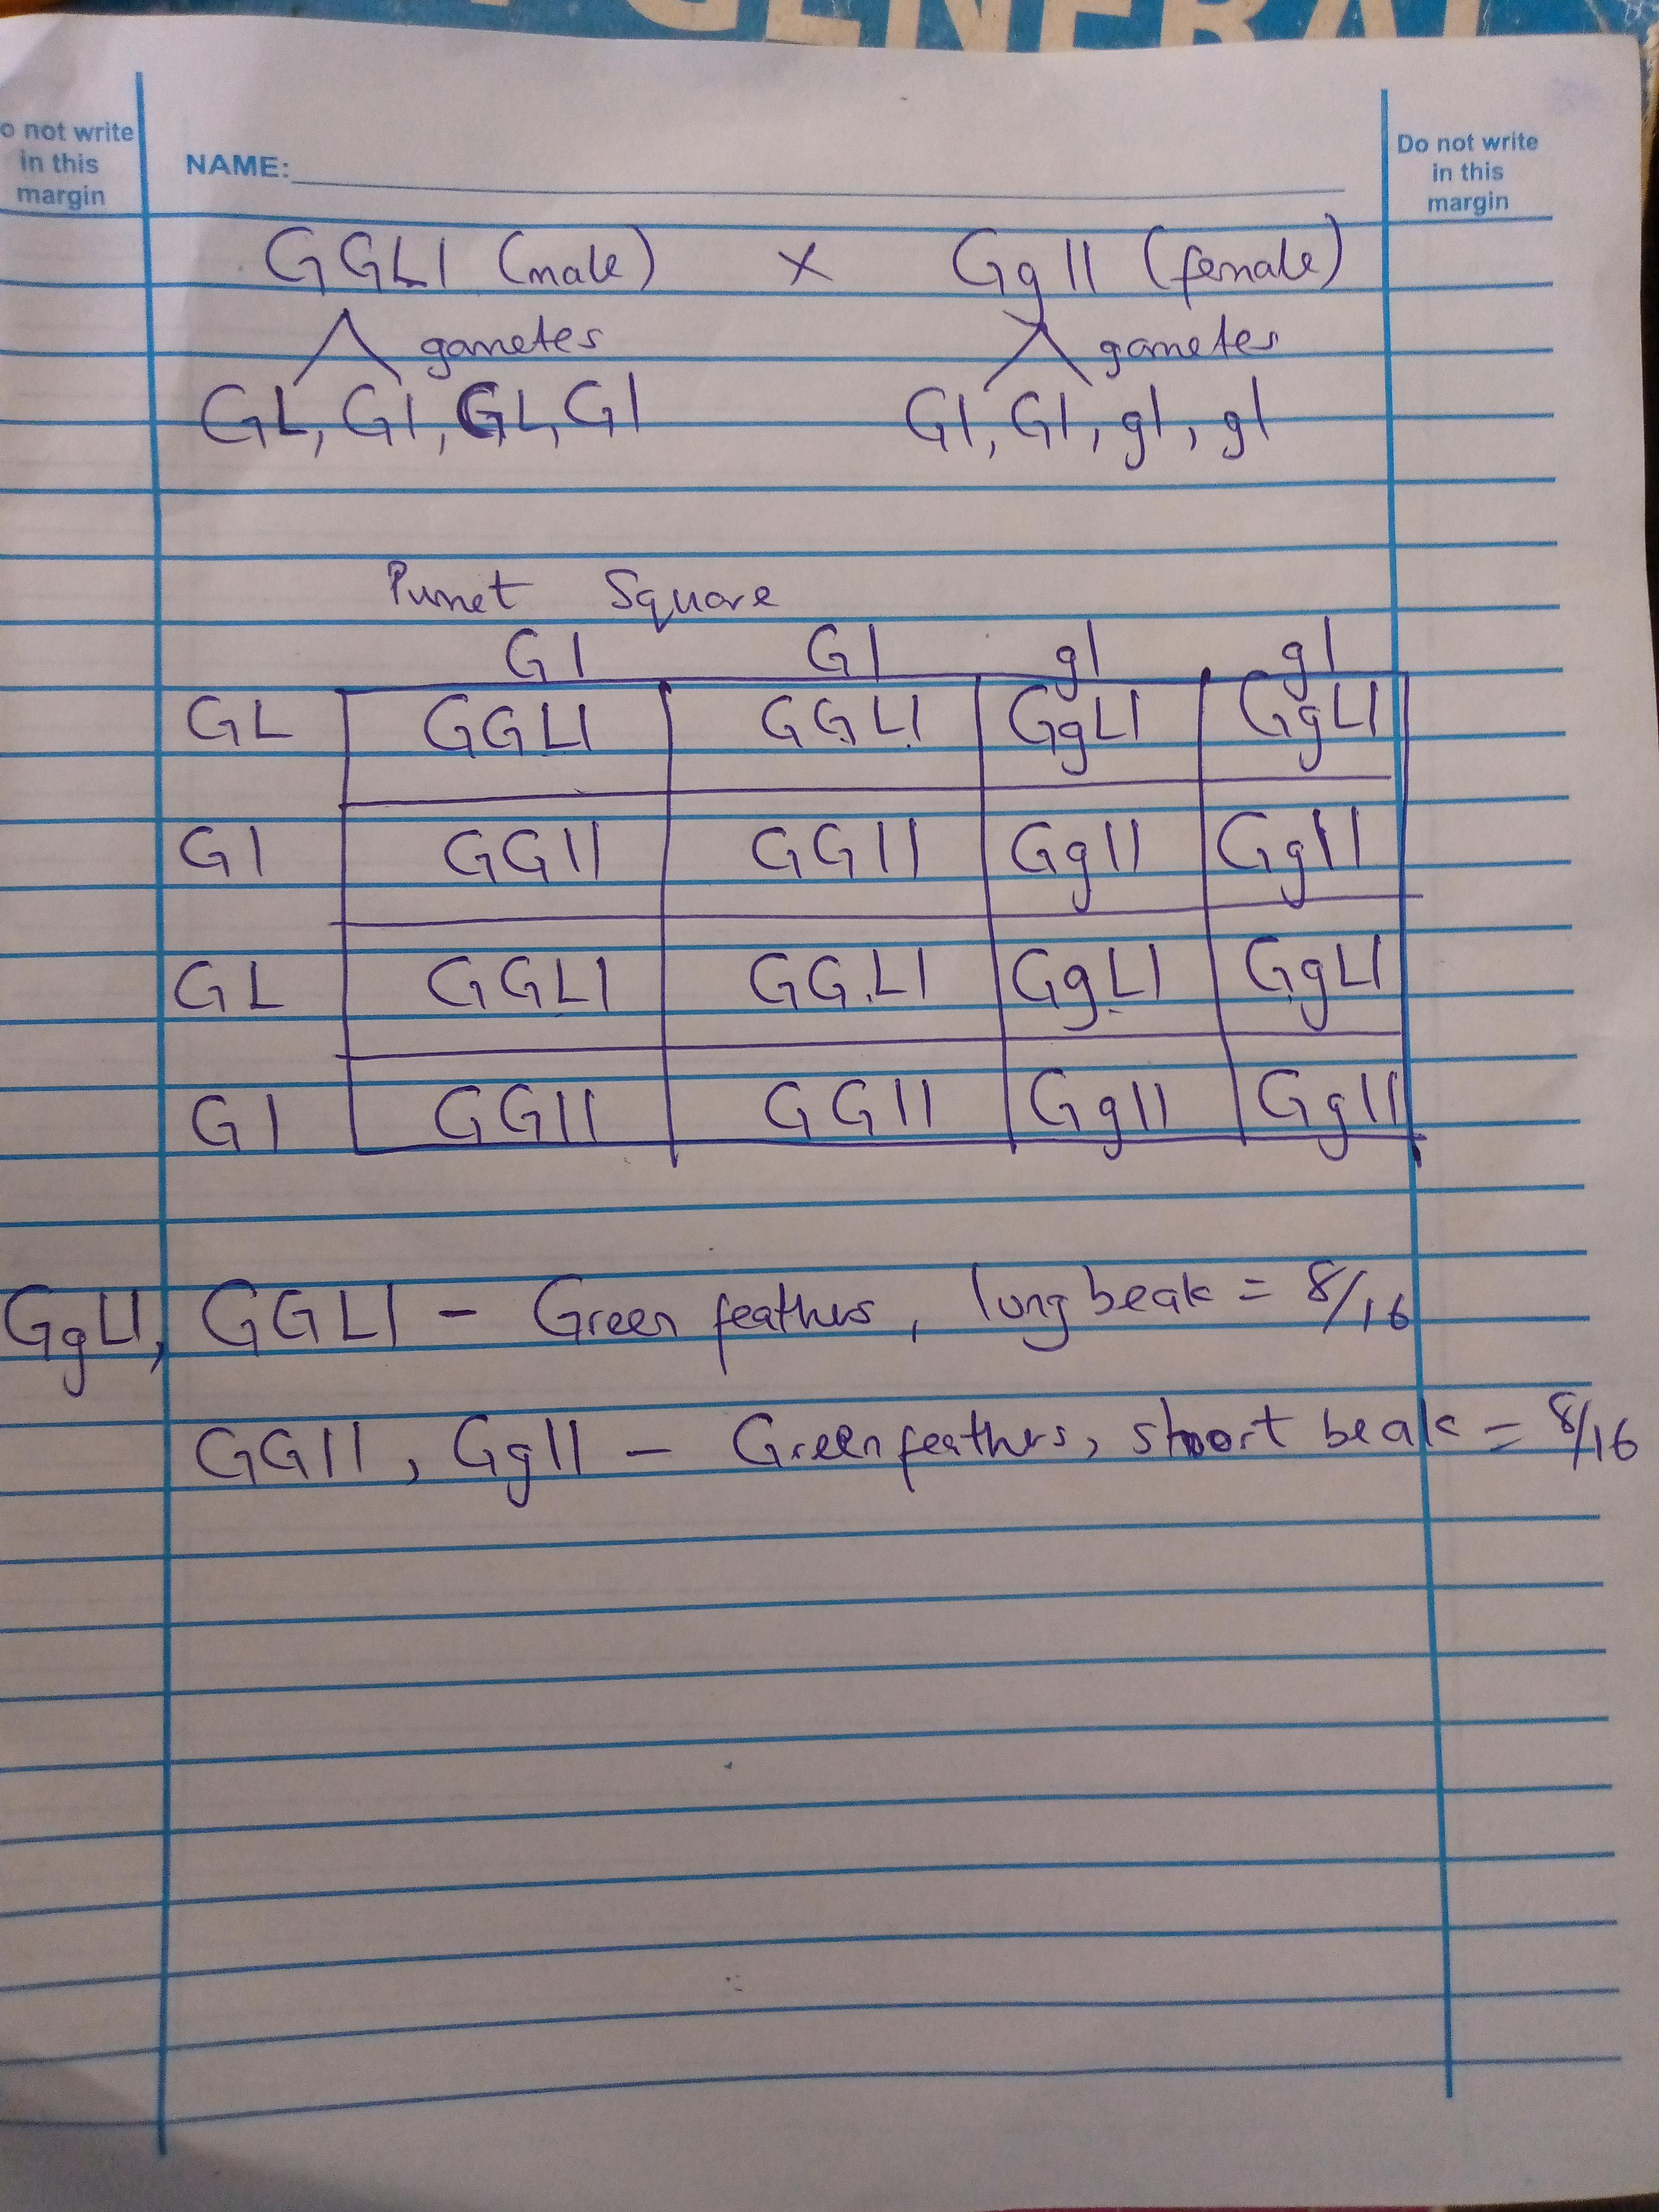 GENERAL
o not write
in this
margin
NAME:
Do not write
in this
margin
GGLl (male) x Ggll (female)
gametes gametes
GL, Gl, GL, Gl Gl, Gl, gl, gl
Punet Square
Gl Gl gl gl
GL GGLl GGLl GgLl GgLl
Gl GGll GGll Ggll Ggll
GL GGLl GGLl GgLl GgLl
Gl GGll GGll Ggll Ggll
GgLl, GGLl - Green feathers, long beak = 8/16
GGll, Ggll - Green feathers, short beak = 8/16